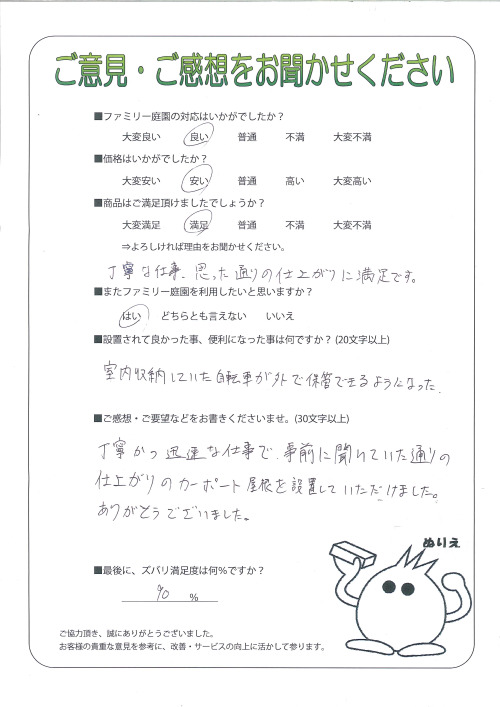 ご意見・ご感想をお聞かせください
■ファミリー庭園の対応はいかがでしたか？
大変良い 良い 普通 不満 大変不満
■価格はいかがでしたか？
大変安い 安い 普通 高い 大変高い
■商品はご満足頂けましたでしょうか？
大変満足 満足 普通 不満 大変不満
⇒よろしければ理由をお聞かせください。
丁寧な仕事、思った通りの仕上がりに満足です。
■またファミリー庭園を利用したいと思いますか？
はい どちらとも言えない いいえ
■設置されて良かった事、便利になった事は何ですか？(20文字以上)
室内収納していた自転車が外で保管できるようになった
■ご感想・ご要望などをお書きくださいませ。(30文字以上)
丁寧かつ迅速な仕事で、事前に聞いていた通りの
仕上がりのカーポート屋根を設置していただけました。
ありがとうございました。
ぬりえ
■最後に、ズバリ満足度は何%ですか？
90 %
ご協力頂き、誠にありがとうございました。
お客様の貴重な意見を参考に、改善・サービスの向上に活かして参ります。